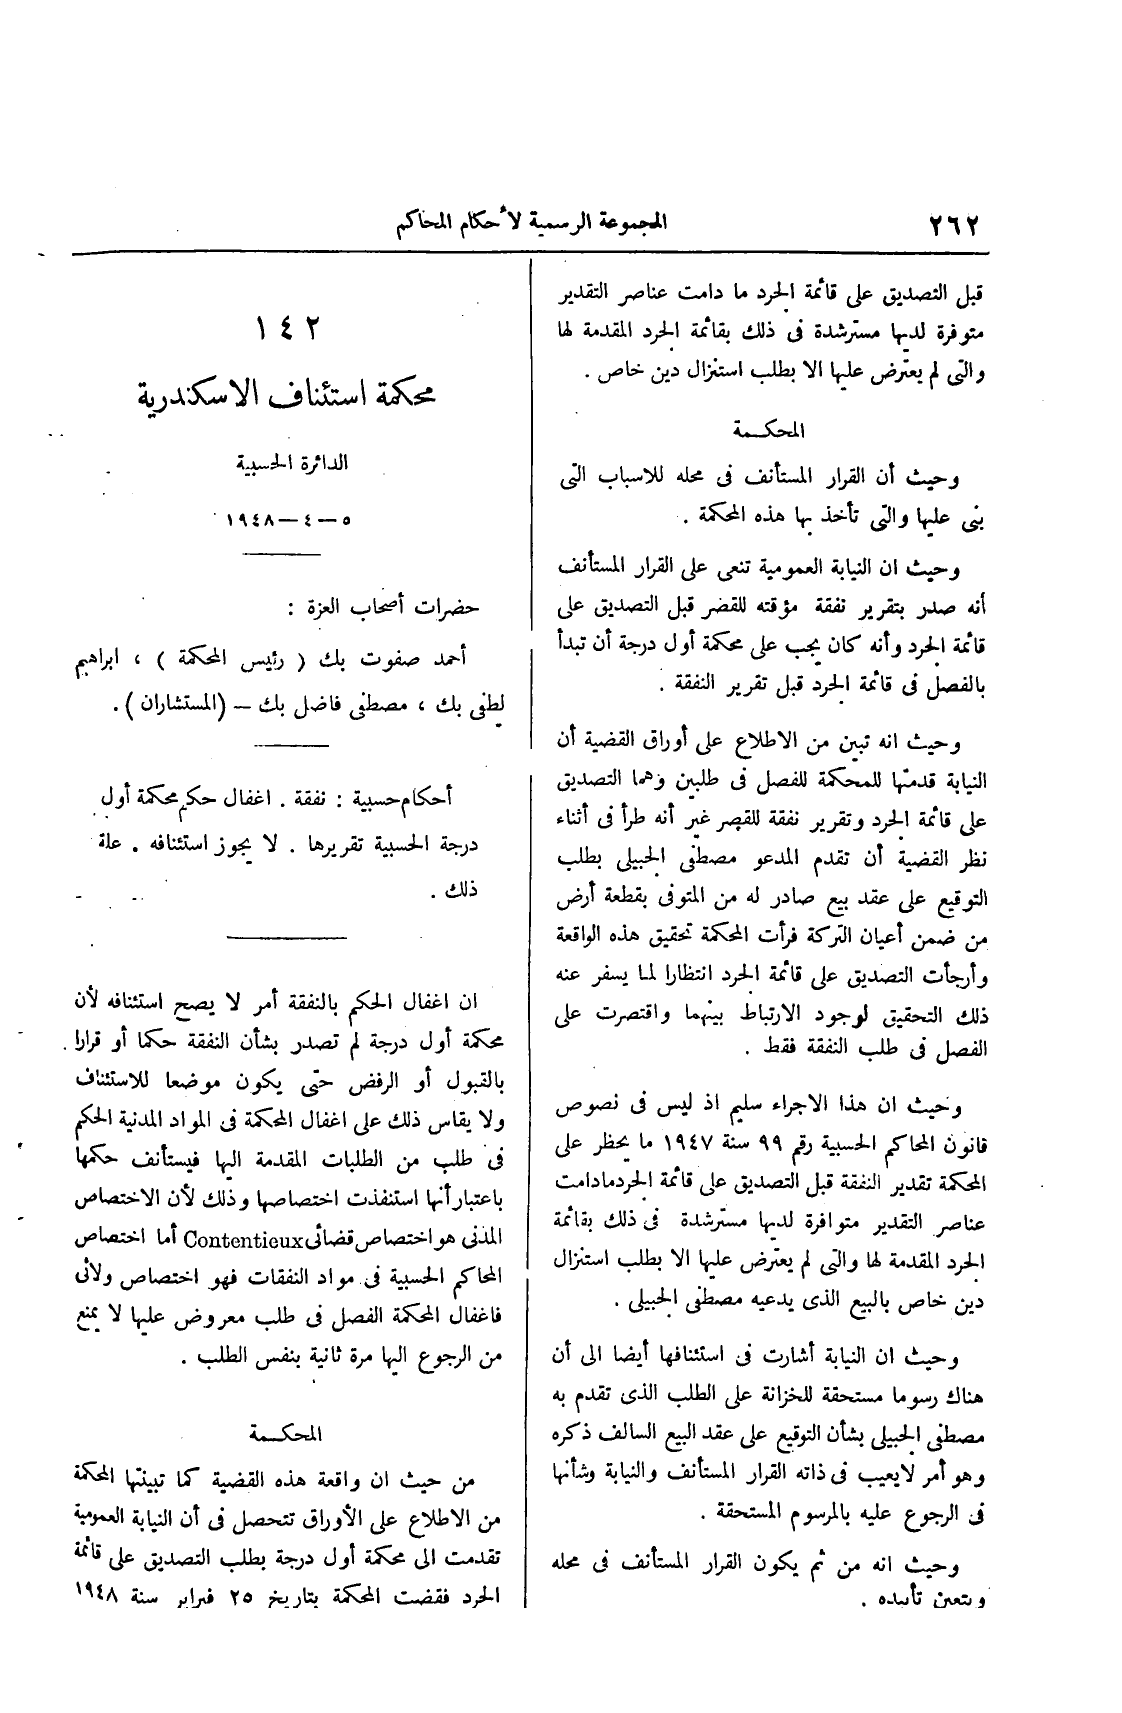 ٢٦٢
المجموعة الرسمية لأحكام المحاكم
قبل التصديق على قائمة الجرد ما دامت عناصر التقدير
متوفرة لديها مسترشدة فى ذلك بقائمة الجرد المقدمة لها
والتى لم يعترض عليها الا بطلب استنزال دين خاص .
المحكمة
وحيث أن القرار المستأنف فى محله للاسباب التى
بنى عليها والتى تأخذ بها هذه المحكمة .
وحيث ان النيابة العمومية تنعى على القرار المستأنف
أنه صدر بتقرير نفقة مؤقته للقصر قبل التصديق على
قائمة الجرد وأنه كان يجب على محكمة أول درجة أن تبدأ
بالفصل فى قائمة الجرد قبل تقرير النفقة .
وحيث انه تبين من الاطلاع على أوراق القضية أن
النيابة قدمتها للمحكمة للفصل فى طلبين وهما التصديق
على قائمة الجرد وتقرير نفقة للقصر غير أنه طرأ فى أثناء
نظر القضية أن تقدم المدعو مصطفى الحبيلى بطلب
التوقيع على عقد بيع صادر له من المتوفى بقطعة أرض
من ضمن أعيان التركة فرأت المحكمة تحقيق هذه الواقعة
وأرجأت التصديق على قائمة الجرد انتظارا لما يسفر عنه
ذلك التحقيق لوجود الارتباط بينهما واقتصرت على
الفصل فى طلب النفقة فقط .
وحيث ان هذا الاجراء سليم اذ ليس فى نصوص
قانون المحاكم الحسبية رقم ٩٩ سنة ١٩٤٧ ما يحظر على
المحكمة تقدير النفقة قبل التصديق على قائمة الجرد مادامت
عناصر التقدير متوافرة لديها مسترشدة فى ذلك بقائمة
الجرد المقدمة لها والتى لم يعترض عليها الا بطلب استنزال
دين خاص بالبيع الذى يدعيه مصطفى الحبيلى .
وحيث ان النيابة أشارت فى استئنافها أيضا الى أن
هناك رسوما مستحقة للخزانة على الطلب الذى تقدم به
مصطفى الحبيلى بشأن التوقيع على عقد البيع السالف ذكره
وهو أمر لا يعيب فى ذاته القرار المستأنف والنيابة وشأنها
فى الرجوع عليه بالمرسوم المستحقة .
وحيث انه من ثم يكون القرار المستأنف فى محله
ويتعين تأييده .
١٤٢
محكمة استئناف الاسكندرية
الدائرة الحسبية
٥ – ٤ – ١٩٤٨
حضرات أصحاب العزة :
أحمد صفوت بك ( رئيس المحكمة ) ، ابراهيم
لطفى بك ، مصطفى فاضل بك – (المستشاران) .
أحكام حسبية : نفقة . اغفال حكم محكمة أول
درجة الحسبية تقريرها . لا يجوز استئنافه . علة
ذلك .
ان اغفال الحكم بالنفقة أمر لا يصح استئنافه لأن
محكمة أول درجة لم تصدر بشأن النفقة حكما أو قرارا
بالقبول أو الرفض حتى يكون موضعا للاستئناف
ولا يقاس ذلك على اغفال المحكمة فى المواد المدنية الحكم
فى طلب من الطلبات المقدمة اليها فيستأنف حكمها
باعتبار أنها استنفذت اختصاصها وذلك لأن الاختصاص
المدنى هو اختصاص قضائى Contentieux أما اختصاص
المحاكم الحسبية فى مواد النفقات فهو اختصاص ولائى
فاغفال المحكمة الفصل فى طلب معروض عليها لا يمنع
من الرجوع اليها مرة ثانية بنفس الطلب .
المحكمة
من حيث ان واقعة هذه القضية كما تبينتها المحكمة
من الاطلاع على الأوراق تتحصل فى أن النيابة العمومية
تقدمت الى محكمة أول درجة بطلب التصديق على قائمة
الجرد فقضت المحكمة بتاريخ ٢٥ فبراير سنة ١٩٤٨